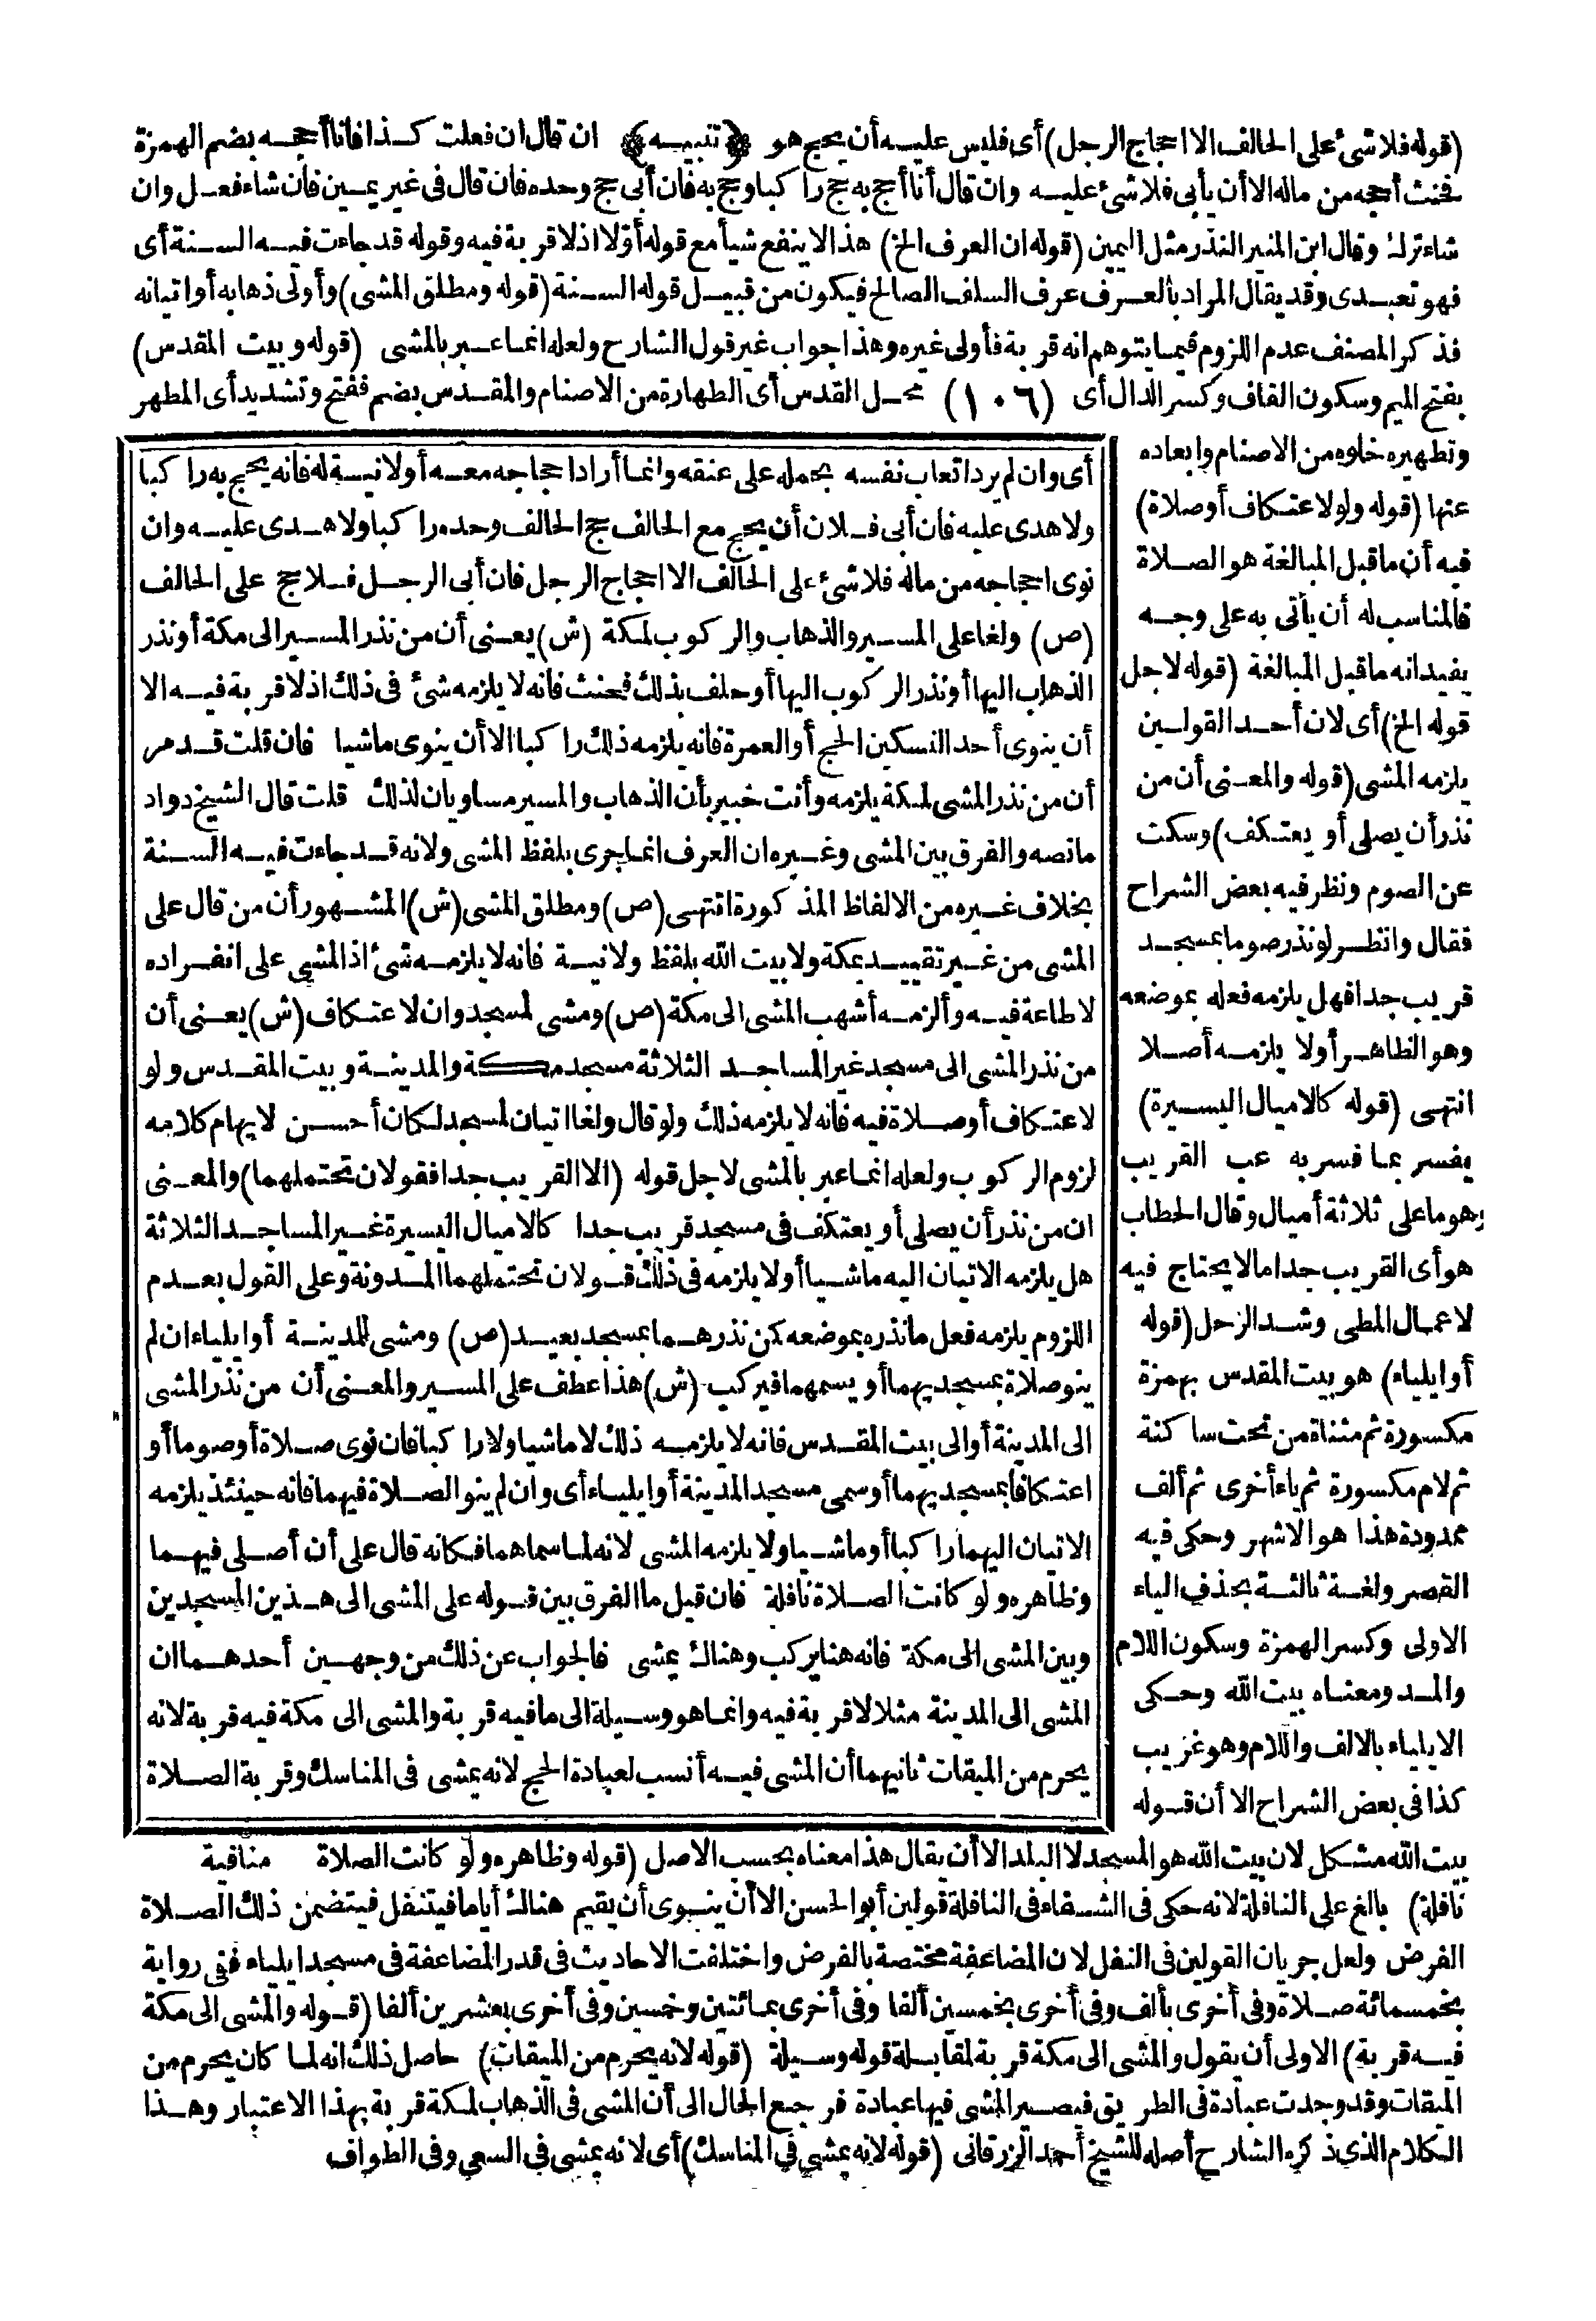 (قوله فلا شئ على الحالف الا احجاج الرجل) أى فليس عليه أن يحج هو ﴿تنبيه﴾ ان قال ان فعلت كذا فانا أحجه بضم الهمزة
فحنث أحجه من ماله الا أن يأبى فلا شئ عليه وان قال أنا أحج به حج راكبا وحج به فان أبى حج وحده فان قال فى غير يمين فان شاء فعل وان
شاء ترك وقال ابن المنير النذر مثل اليمين (قوله ان العرف الخ) هذا لا ينفع شيأ مع قوله أولا اذ لا قربة فيه وقوله قد جاءت فيه السنة أى
فهو تعبدى وقد يقال المراد بالعرف عرف السلف الصالح فيكون من قبيل قوله السنة (قوله ومطلق المشى) وأولى ذهابه أو اتيانه
فذكر المصنف عدم اللزوم فيما يتوهم انه قربة فأولى غيره وهذا جواب غير قول الشارح ولعله انما عبر بالمشى (قوله وبيت المقدس)
بفتح الميم وسكون القاف وكسر الدال أى (١٠٦) محل القدس أى الطهارة من الاصنام والمقدس بضم ففتح وتشديد أى المطهر
وتطهيره خلوه من الاصنام وابعاده
عنها (قوله ولو لاعتكاف أو صلاة)
فيه أن ما قبل المبالغة هو الصلاة
فالمناسب له أن يأتى به على وجه
يفيد انه ما قبل المبالغة (قوله لاجل
قوله الخ) أى لان أحد القولين
يلزمه المشى (قوله والمعنى أن من
نذر أن يصلى أو يعتكف) وسكت
عن الصوم ونظر فيه بعض الشراح
فقال وانظر لو نذر صوما بمسجد
قريب جدا فهل يلزمه فعله بموضعه
وهو الظاهر أو لا يلزمه أصلا
انتهى (قوله كالاميال اليسيرة)
يفسر بما فسر به عب القريب
وهو ما على ثلاثة أميال وقال الحطاب
هو أى القريب جدا ما لا يحتاج فيه
لاعمال المطى وشد الرحل (قوله
أو ايلياء) هو بيت المقدس بهمزة
مكسورة ثم مثناة من تحت ساكنة
ثم لام مكسورة ثم ياء أخرى ثم ألف
ممدودة هذا هو الاشهر وحكى فيه
القصر ولغة ثالثة بحذف الياء
الاولى وكسر الهمزة وسكون اللام
والمد ومعناه بيت الله وحكى
الايلياء بالالف واللام وهو غريب
كذا فى بعض الشراح الا أن قوله
أى وان لم يرد اتعاب نفسه بحمله على عنقه وانما أراد احجاجه معه أو لا نية له فانه يحج به راكبا
ولا هدى عليه فان أبى فلان أن يحج مع الحالف حج الحالف وحده راكبا ولا هدى عليه وان
نوى احجاجه من ماله فلا شئ على الحالف الا احجاج الرجل فان أبى الرجل فلا حج على الحالف
(ص) ولغا على المسير والذهاب والركوب لمكة (ش) يعنى أن من نذر المسير الى مكة أو نذر
الذهاب اليها أو نذر الركوب اليها أو حلف بذلك فحنث فانه لا يلزمه شئ فى ذلك اذ لا قربة فيه الا
أن ينوى أحد النسكين الحج أو العمرة فانه يلزمه ذلك راكبا الا أن ينوى ماشيا فان قلت قد مر
أن من نذر المشى لمكة يلزمه وأنت خبير بأن الذهاب والمسير مساويان لذلك قلت قال الشيخ دواد
ما نصه والفرق بين المشى وغيره ان العرف انما جرى بلفظ المشى ولانه قد جاءت فيه السنة
بخلاف غيره من الالفاظ المذكورة انتهى (ص) ومطلق المشى (ش) المشهور أن من قال على
المشى من غير تقييد بمكة ولا بيت الله بلفظ ولا نية فانه لا يلزمه شئ اذ المشى على انفراده
لا طاعة فيه وألزمه أشهب المشى الى مكة (ص) ومشى لمسجد وان لاعتكاف (ش) يعنى أن
من نذر المشى الى مسجد غير المساجد الثلاثة مسجد مكة والمدينة وبيت المقدس ولو
لاعتكاف أو صلاة فيه فانه لا يلزمه ذلك ولو قال ولغا اتيان لمسجد لكان أحسن لايهام كلامه
لزوم الركوب ولعله انما عبر بالمشى لاجل قوله (الا القريب جدا فقولان تحتملهما) والمعنى
ان من نذر أن يصلى أو يعتكف فى مسجد قريب جدا كالاميال اليسيرة غير المساجد الثلاثة
هل يلزمه الاتيان اليه ماشيا أو لا يلزمه فى ذلك قولان تحتملهما المدونة وعلى القول بعدم
اللزوم يلزمه فعل ما نذره بموضعه كمن نذرهما بمسجد بعيد (ص) ومشى للمدينة أو ايلياء ان لم
ينو صلاة بمسجديهما أو يسمهما فيركب (ش) هذا عطف على المسير والمعنى أن من نذر المشى
الى المدينة أو الى بيت المقدس فانه لا يلزمه ذلك لا ماشيا ولا راكبا فان نوى صلاة أو صوما أو
اعتكافا بمسجديهما أو سمى مسجد المدينة أو ايلياء أى وان لم ينو الصلاة فيهما فانه حينئذ يلزمه
الاتيان اليهما راكبا أو ماشيا ولا يلزمه المشى لانه لما سماهما فكانه قال على أن أصلى فيهما
وظاهره ولو كانت الصلاة نافلة فان قيل ما الفرق بين قوله على المشى الى هذين المسجدين
وبين المشى الى مكة فانه هنا يركب وهناك يمشى فالجواب عن ذلك من وجهين أحدهما ان
المشى الى المدينة مثلا لا قربة فيه وانما هو وسيلة الى ما فيه قربة والمشى الى مكة فيه قربة لانه
يحرم من الميقات ثانيهما أن المشى فيه أنسب لعبادة الحج لانه يمشى فى المناسك وقربة الصلاة
بيت الله مشكل لان بيت الله هو المسجد لا البلد الا أن يقال هذا معناه بحسب الاصل (قوله وظاهره ولو كانت الصلاة منافية
نافلة) بالغ على النافلة لانه حكى فى الشفاء فى النافلة قولين أبو الحسن الا أن ينوى أن يقيم هناك أياما فيتنفل فيتضمن ذلك الصلاة
الفرض ولعل جريان القولين فى النفل لان المضاعفة مختصة بالفرض واختلفت الاحاديث فى قدر المضاعفة فى مسجد ايلياء ففى رواية
بخمسمائة صلاة وفى أخرى بألف وفى أخرى بخمسين ألفا وفى أخرى بمائتين وخمسين وفى أخرى بعشرين ألفا (قوله والمشى الى مكة
فيه قربة) الاولى أن يقول والمشى الى مكة قربة لمقابلة قوله وسيلة (قوله لانه يحرم من الميقات) حاصل ذلك انه لما كان يحرم من
الميقات وقد وجدت عبادة فى الطريق فيصير المشى فيها عبادة فرجع الحال الى أن المشى فى الذهاب لمكة قربة بهذا الاعتبار وهذا
الكلام الذى ذكره الشارح أصله للشيخ أحمد الزرقانى (قوله لانه يمشى فى المناسك) أى لانه يمشى فى السعى وفى الطواف